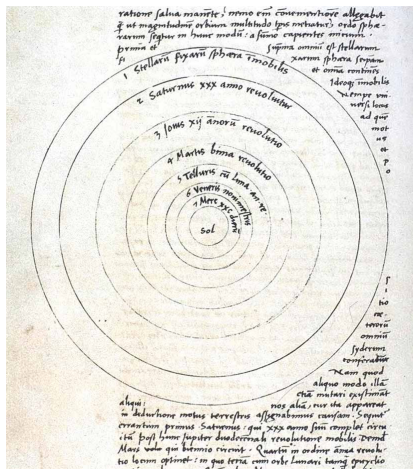 ratione salua manēte, nemo em̄ conuenientiorē allegabit
q̄ ut magnitudinē orbium multitudo tp̄is metiatur, ordo sphæ-
rarum seqtur in hunc modū: a sūmo capientes initium.
prima et
suprema omniū est stellarum
fixarum sphæra seipam
et omīa continēs
Ideoq; īmobilis
Nempe vni-
uersi locus
ad quē
mot
us
et
p
o
1 Stellarū fixarū sphæra īmobilis
2 Saturnus xxx anno reuoluitur
3 Iouis xij annorū reuolutio
4 Martis bima reuolutio
5 Telluris cū Luna an. re.
6 Veneris nonimestris
7 Merc xxc dierū
Sol
s
i
tio
cæ-
terorū
omniū
syderum
conferatur
Nam quod
aliquo modo illā
etiā mutari existimāt
aliqui:
nos aliā, cur ita appareat
in deductione motus terrestris assignabimus causam. Sequit
errantium primus Saturnus: qui xxx anno suū complet circu
itū post hunc Jupiter duodecennali reuolutione mobilis Deind
Mars qui biennio circuit. Quartū in ordine annua reuolu-
tio locum optinet: in quo terrā cum orbe Lunari tanq̄ epicyclio